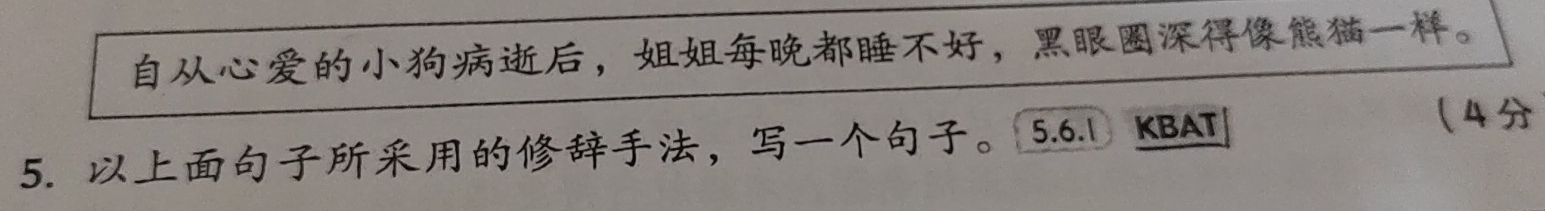 自从心爱的小狗病逝后，姐姐每晚都睡不好，黑眼圈深得像熊猫一样。
5. 以上面句子所采用的修辞手法，写一个句子。 5.6.1 KBAT （4分